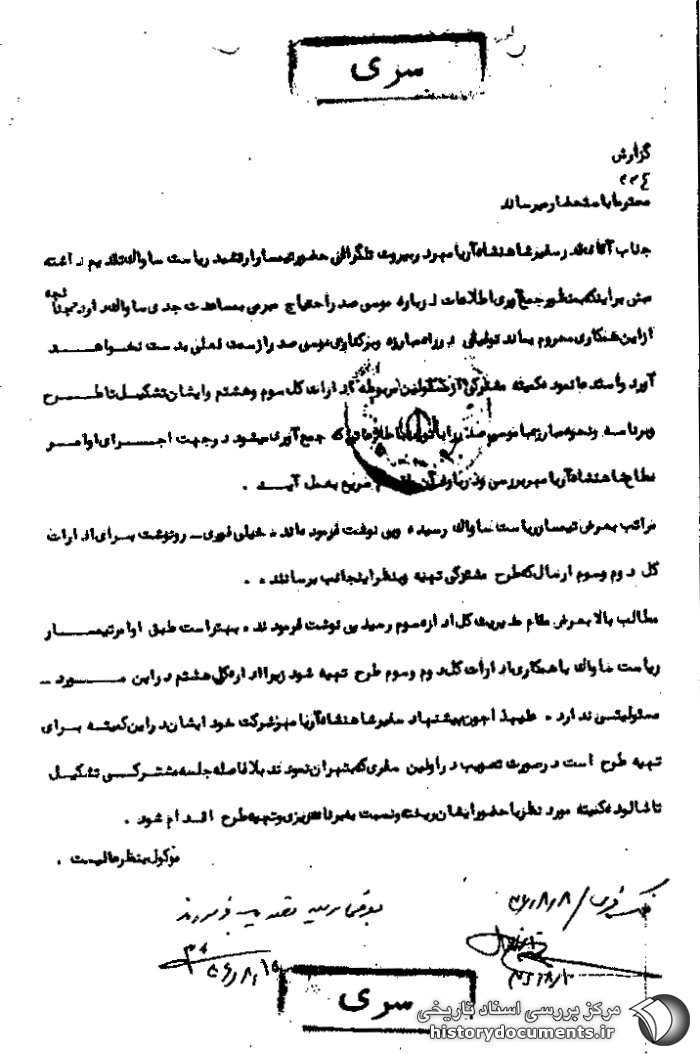 سری
گزارش
محترما باستحضار میرساند
جناب آقای قدر سفیر شاهنشاه آریامهر در بیروت تلگرافی حضور تیمسار ارتشبد ریاست ساواک تقدیم داشته
مبنی بر اینکه بمنظور جمع آوری اطلاعات درباره موسی صدر احتیاج مبرمی بمساعدت جدی ساواک دارد چنانچه
از این همکاری محروم بماند توفیقی در راه مبارزه و برکناری موسی صدر از سمت فعلی بدست نخواهد
آورد و استدعا نموده کمیته مشترکی از مسئولین مربوطه ادارات کل سوم و هشتم و ایشان تشکیل تا طرح
و برنامه و نحوه مبارزه با موسی صدر را با توجه باطلاعاتی که جمع آوری میشود در جهت اجرای اوامر
مطاع شاهنشاه آریامهر بررسی و درباره آن اقدام سریع بعمل آید .
مراتب بعرض تیمسار ریاست ساواک رسیده پی نوشت فرموده اند ، خیلی فوری ـ رونوشت برای ادارات
کل دوم و سوم ارسال که طرح مشترکی تهیه و بنظر اینجانب برسانند .
مطالب بالا بعرض مقام مدیریت کل اداره سوم رسید پی نوشت فرمودند ، بهتر است طبق اوامر تیمسار
ریاست ساواک با همکاری ادارات کل دوم و سوم طرح تهیه شود زیرا اداره کل هشتم در این مورد ـ
مسئولیتی ندارد . علیهذا چون پیشنهاد سفیر شاهنشاه آریامهر شرکت خود ایشان در این کمیته برای
تهیه طرح است در صورت تصویب در اولین سفری که بتهران نمودند بلافاصله جلسه مشترکی تشکیل
تا شالوده کمیته مورد نظر با حضور ایشان ریخته و نسبت به برنامه ریزی و تهیه طرح اقدام شود .
موکول بنظر عالیست .
۵۶/۸/۸
۵۶/۸/۱۰
سری
مرکز بررسی اسناد تاریخی
historydocuments.ir